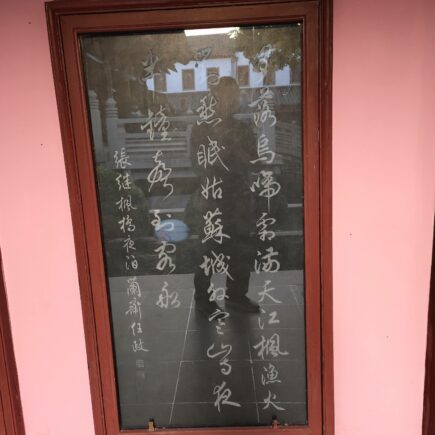 月落烏啼霜滿天江楓漁火
對愁眠姑蘇城外寒山寺夜
半鐘聲到客船
張繼楓橋夜泊 蘭齋任政